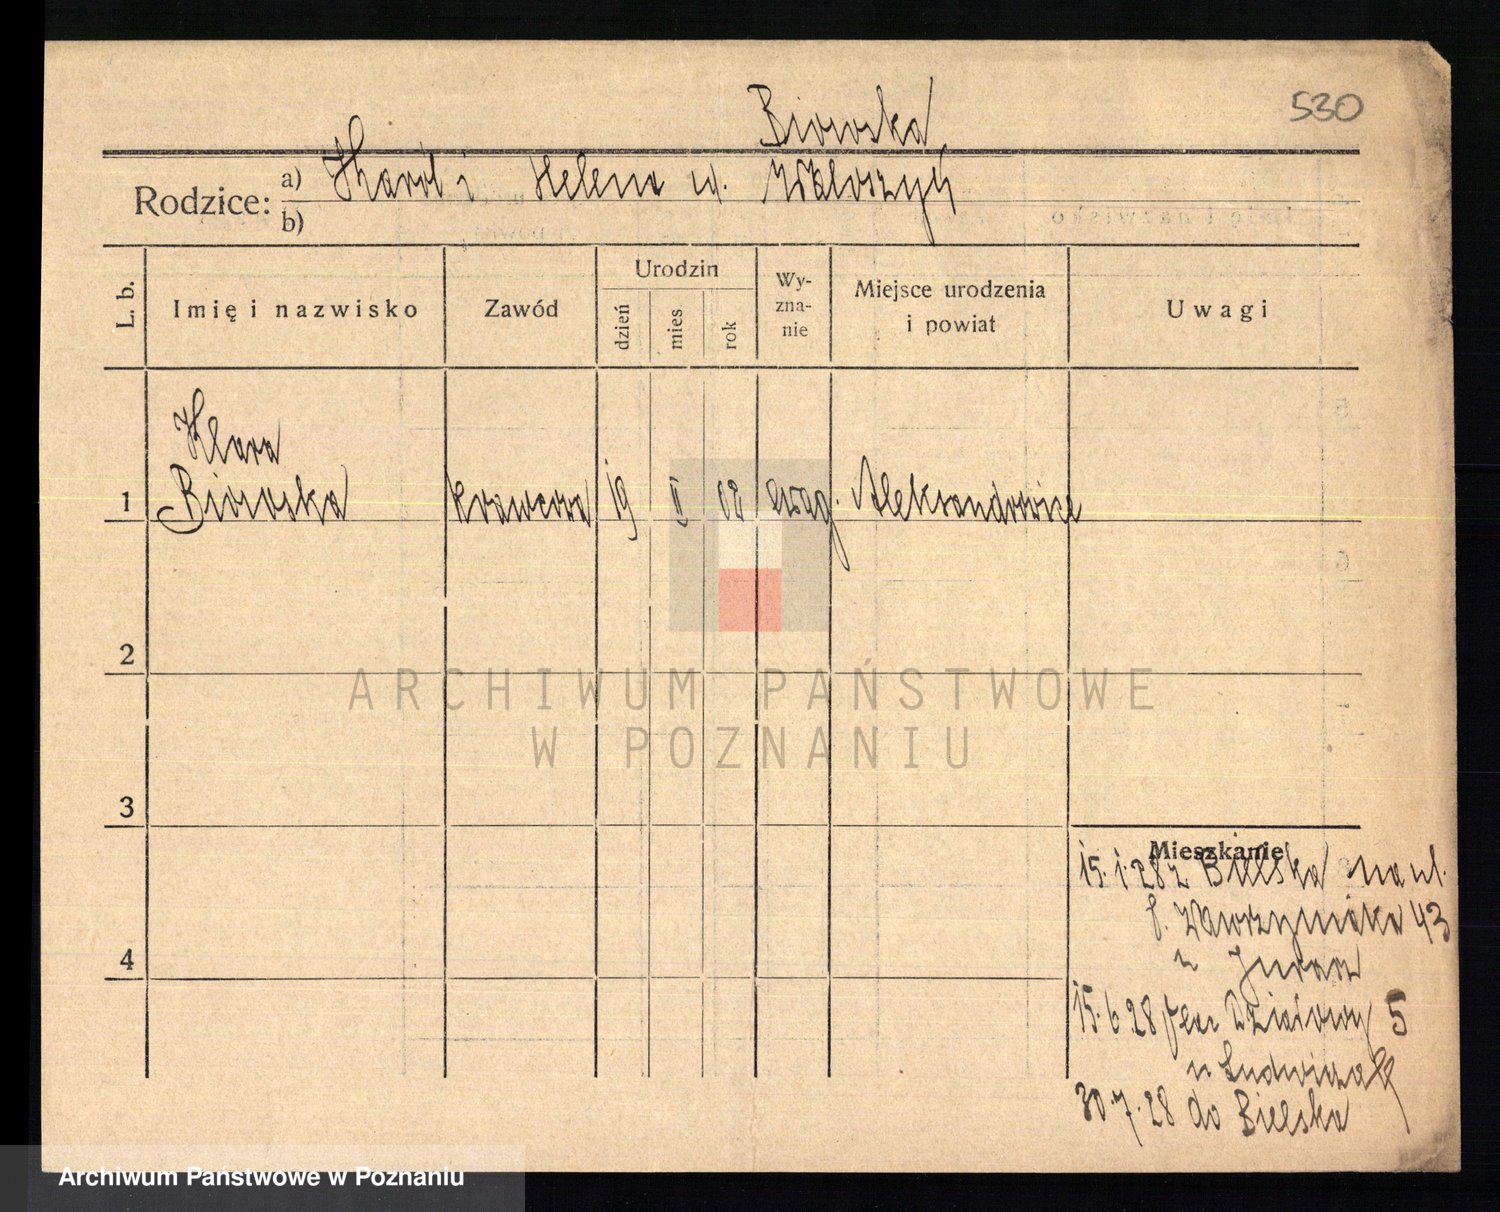 530
Biowska
Rodzice: a) Karol i Helena ur.
b)
L. b.
Imię i nazwisko
Zawód
Urodzin
dzień
mies
rok
Wy-
zna-
nie
Miejsce urodzenia
i powiat
Uwagi
Klara
1 Biowska krawcowa 19 II 02 ewag. Aleksandrowice
2
3
4
Mieszkanie
15.1.28 z Bielska na ul.
Wawrzyniaka 43
u
15.6.28 Działowy 5
u Ludwiczak
30.7.28 do Bielska
ARCHIWUM PAŃSTWOWE
W POZNANIU
Archiwum Państwowe w Poznaniu